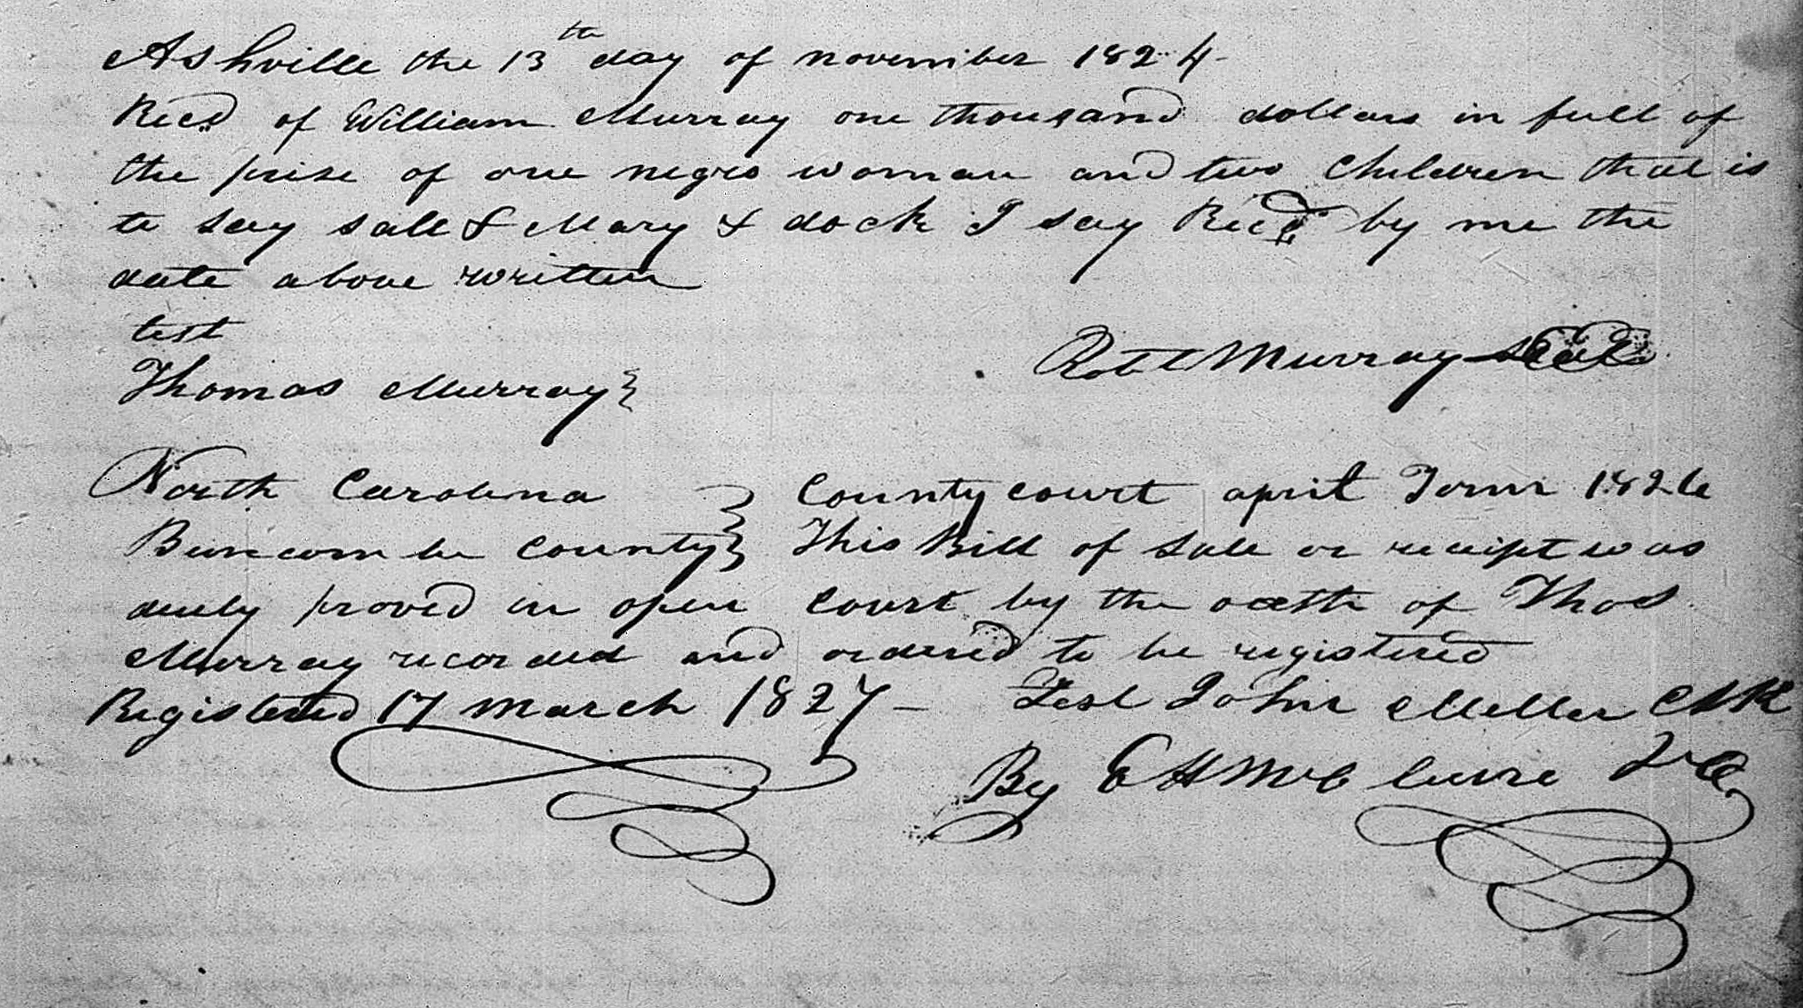 Ashville the 13th day of november 1824
Recd of William Murray one thousand dollars in full of
the prise of one negro woman and two Children that is
to say sall & Mary & dock I say Recd by me the
date above written
test
Thomas Murray
Robt Murray seal
North Carolina
County court april Term 1826
Buncombe County
This Bill of Sale or receipt was
duely proved in open Court by the oath of Thos
Murray recorded and ordered to be registered
Registered 17 March 1827 - Test John Miller Clk
By E H McClure